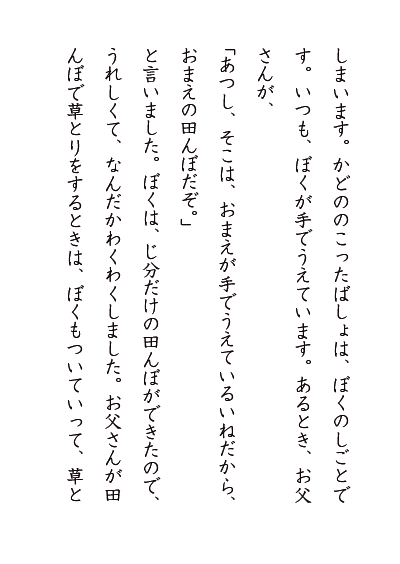 しまいます。かどののこったばしょは、ぼくのしごとで
す。いつも、ぼくが手でうえています。あるとき、お父
さんが、
「あつし、そこは、おまえが手でうえているいねだから、
おまえの田んぼだぞ。」
と言いました。ぼくは、じ分だけの田んぼができたので、
うれしくて、なんだかわくわくしました。お父さんが田
んぼで草とりをするときは、ぼくもついていって、草と